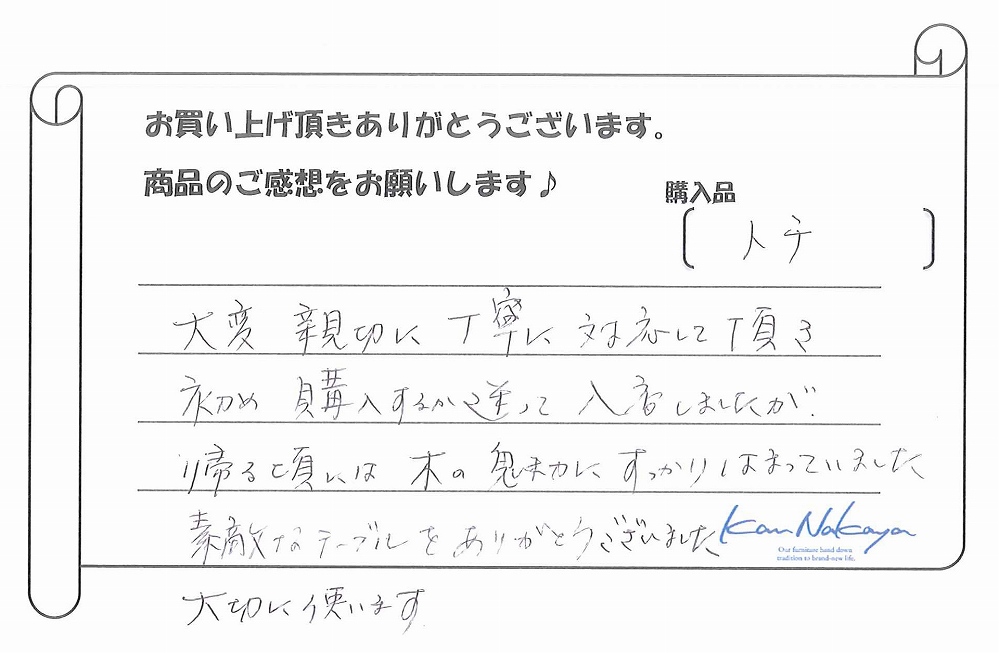 お買い上げ頂きありがとうございます。
商品のご感想をお願いします♪
購入品
トチ
大変 親切に 丁寧に 対応して頂き
初め 購入するか迷って 入店しましたが
帰る頃には 木の魅力に すっかりはまっていました
素敵なテーブルをありがとうございました
Kan Nakaya
Our furniture hand down
tradition to brand-new life.
大切に使います